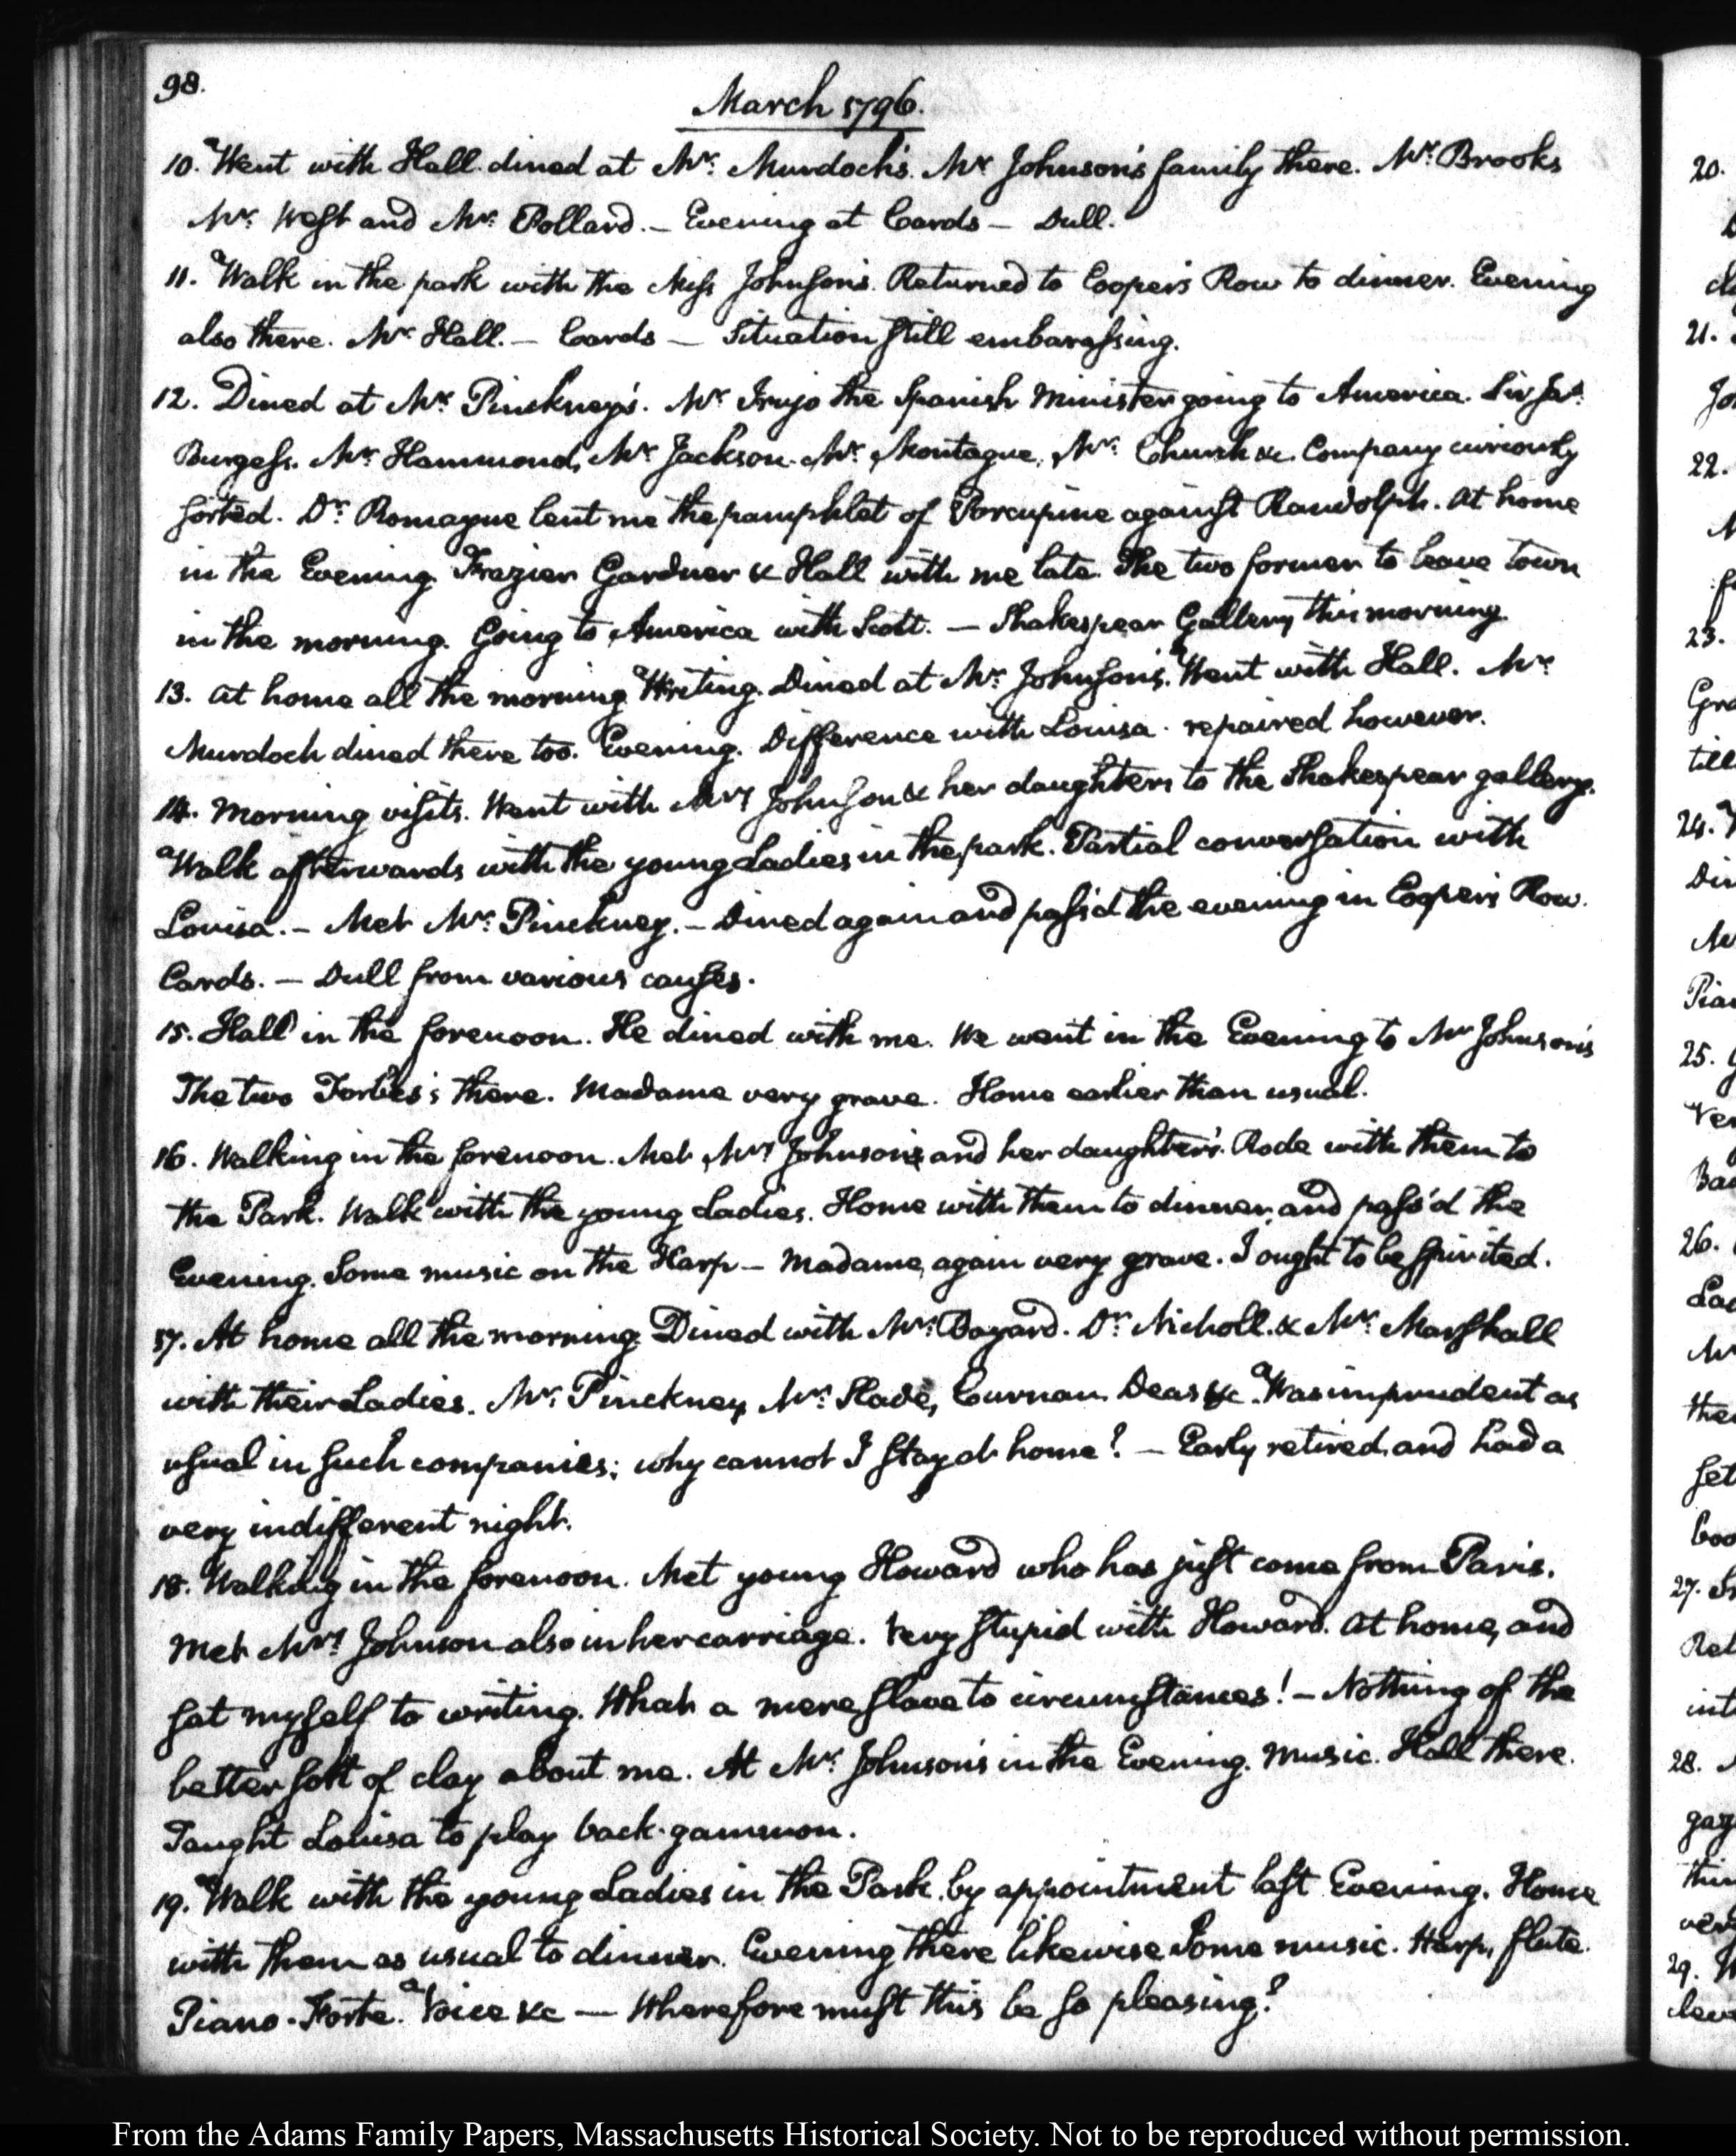 98.
March 1796.
10. Went with Hall. dined at Mr. Murdoch's. Mr. Johnson's family there. Mr. Brooks
Mr. West and Mr. Pollard. — Evening at Cards — Dull.
11. Walk in the park with the Miss Johnson's. Returned to Cooper's Row to dinner. Evening
also there. Mr. Hall. — Cards — Situation still embarassing.
12. Dined at Mr. Pinckney's. Mr. Irujo the Spanish Minister going to America. Sir Jas.
Burgess. Mr. Hammond, Mr. Jackson. Mr. Montague, Mr. Church &c. Company curiously
sorted. Dr. Romayne lent me the pamphlet of Porcupine against Randolph. At home
in the Evening. Frazier Gardner & Hall with me late. The two former to leave town
in the morning. Going to America with Scott. — Shakespear Gallery this morning.
13. At home all the morning. Writing. Dined at Mr. Johnson's. Went with Hall. Mr.
Murdoch dined there too. Evening. Difference with Louisa. repaired however.
14. Morning visits. Went with Mrs. Johnson & her daughters to the Shakespear gallery.
Walk afterwards with the young Ladies in the park. Partial conversation with
Louisa. — Met Mr. Pinckney. — Dined again and pass'd the evening in Cooper's Row.
Cards. — Dull from various causes.
15. Hall in the forenoon. He dined with me. We went in the Evening to Mr. Johnson's
The two Forbes's there. Madame very grave. Home earlier than usual.
16. Walking in the forenoon. Met Mrs. Johnson's and her daughter's. Rode with them to
the Park. Walk with the young Ladies. Home with them to dinner, and pass'd the
Evening. Some music on the Harp — Madame, again very grave. I ought to be spirited.
17. At home all the morning. Dined with Mr. Bayard. Dr. Nicholl. & Mr. Marshall
with their Ladies. Mr. Pinckney, Mr. Slade, Curnan. Deas &c. Was imprudent as
usual in such companies; why cannot I stay at home? — Early retired, and had a
very indifferent night.
18. Walking in the forenoon. Met young Howard who has just come from Paris.
Met Mrs. Johnson also in her carriage. Very stupid with Howard. At home, and
sat myself to writing. What a mere slave to circumstances! — Nothing of the
better sort of clay about me. At Mr. Johnson's in the Evening. Music. Hall there.
Taught Louisa to play back-gammon.
19. Walk with the young Ladies in the Park, by appointment last Evening. Home
with them as usual to dinner. Evening there likewise. Some music. Harp, flute.
Piano-Forte. Voice &c — Wherefore must this be so pleasing?
From the Adams Family Papers, Massachusetts Historical Society. Not to be reproduced without permission.